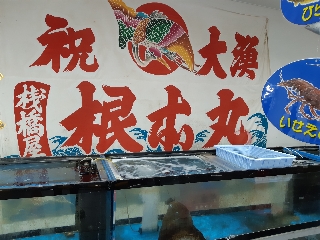 祝 大漁
桟橋屋
根本丸
いせえ
ひら